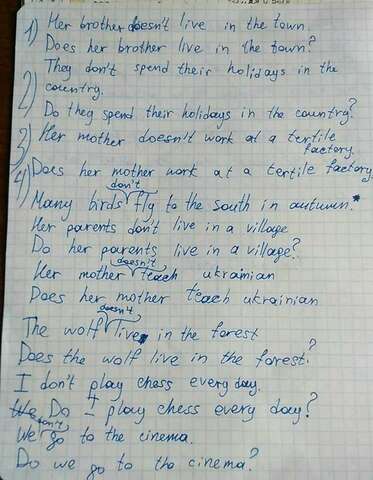 1) Her brother doesn't live in the town.
Does her brother live in the town?
They don't spend their holidays in the
2) country.
Do they spend their holidays in the country?
3) Her mother doesn't work at a tertile
factory
4) Does her mother work at a tertile factory
don't
Many birds fly to the south in autumn.
Her parents don't live in a village
Do her parents live in a village?
doesn't
Her mother teach ukrainian
Does her mother teach ukrainian
doesn't
The wolf live in the forest
Does the wolf live in the forest?
I don't play chess every day.
We Do I play chess every day?
don't
We go to the cinema.
Do we go to the cinema?